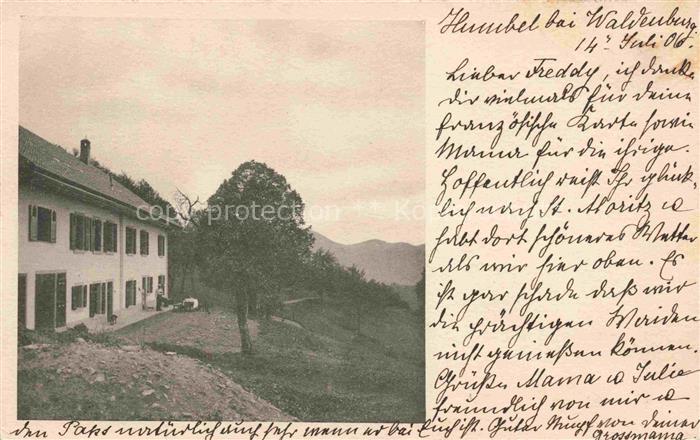 Humbel bei Waldenburg
14ᵗ Juli 06.
Lieber Freddy, ich danke
Dir vielmals für deine
französische Karte sowie
Mama für die ihrige.
Hoffentlich reist Ihr glück-
lich nach St. Moritz u
habt dort schöneres Wetter
als wir hier oben. Es
ist gar schade daß wir
die prächtigen Weiden
nicht genießen können.
Grüße Mama u Julie
freundlich von mir u
den Papa natürlich auch sehr wenn er bei Euch ist. Guter von deiner
Grossmama
copyright protection **